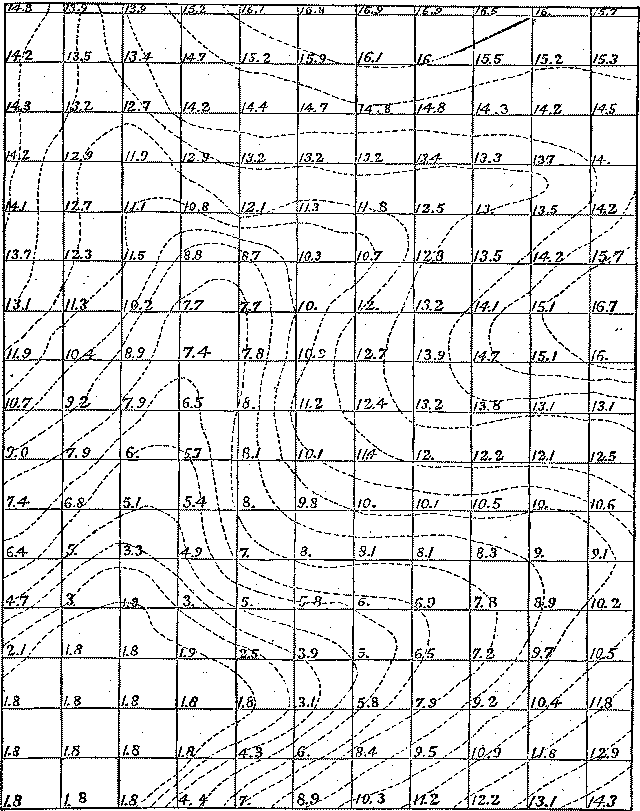 14.8 13.9 13.9 15.2 16.1 16.8 16.9 16.9 16.5 16. 15.7
14.2 13.5 13.4 14.7 15.2 15.9 16.1 16. 15.5 15.2 15.3
14.3 13.2 12.7 14.2 14.4 14.7 14.8 14.8 14.3 14.2 14.5
14.2 12.9 11.9 12.9 13.2 13.2 13.2 13.4 13.3 13.7 14.
14.1 12.7 11.1 10.8 12.1 11.3 11.8 12.5 13. 13.5 14.2
13.7 12.3 11.5 8.8 8.7 10.3 10.7 12.8 13.5 14.2 15.7
13.1 11.3 10.2 7.7 7.7 10. 12. 13.2 14.1 15.1 16.7
11.9 10.4 8.9 7.4 7.8 10.9 12.7 13.9 14.7 15.1 16.
10.7 9.2 7.9 6.5 8. 11.2 12.4 13.2 13.8 13.1 13.1
9.0 7.9 6. 5.7 8.1 10.1 11.4 12. 12.2 12.1 12.5
7.4 6.8 5.1 5.4 8. 9.8 10. 10.1 10.5 10. 10.6
6.4 5. 3.3 4.9 7. 8. 8.1 8.1 8.3 9. 9.1
4.7 3. 1.9 3. 5. 5.8 6. 6.9 7.8 8.9 10.2
2.1 1.8 1.8 1.9 2.5 3.9 5. 6.5 7.2 9.7 10.5
1.8 1.8 1.8 1.8 1.8 3.1 5.8 7.9 9.2 10.4 11.8
1.8 1.8 1.8 1.8 4.3 6. 8.4 9.5 10.9 11.8 12.9
1.8 1.8 1.8 4.4 7. 8.9 10.3 11.2 12.2 13.1 14.3